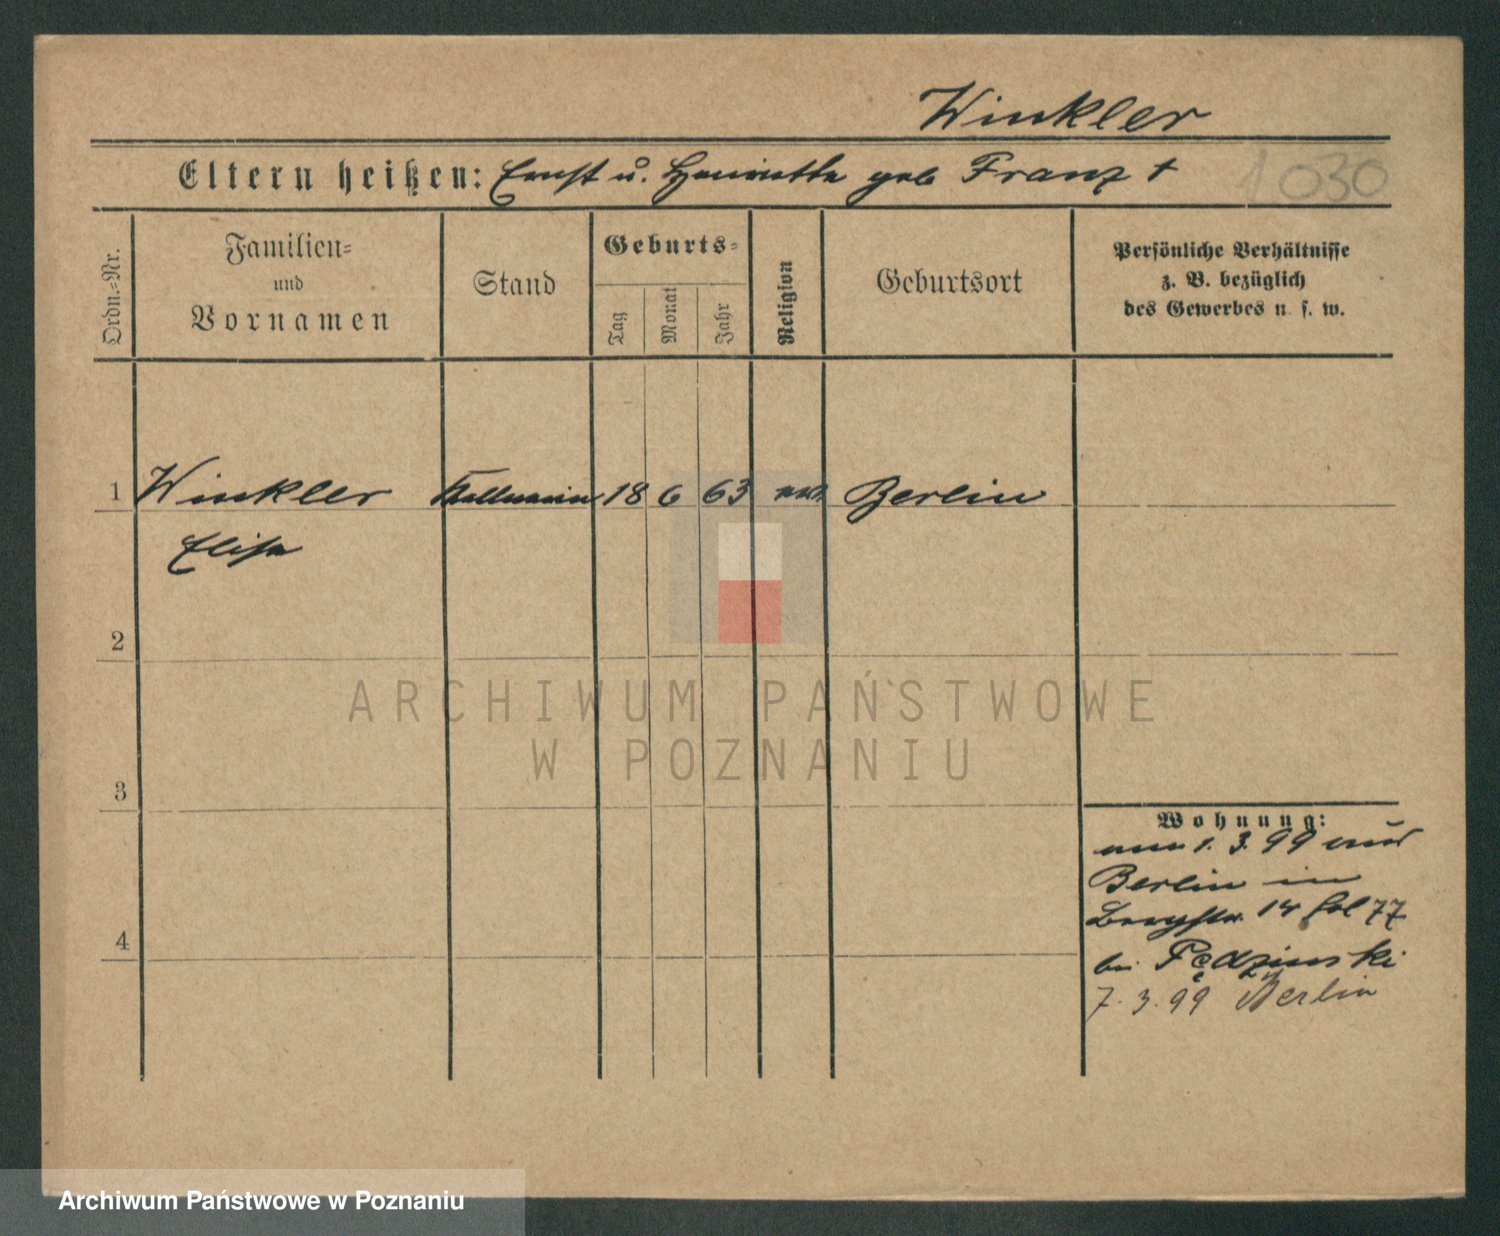 Winkler
Eltern heißen: Ernst u. Henriette geb Franz †
1030
Ordn.-Nr.
Familien-
und
Vornamen
Stand
Geburts-
Tag
Monat
Jahr
Religion
Geburtsort
Persönliche Verhältnisse
z. B. bezüglich
des Gewerbes u. s. w.
1 Winkler Kellnerin 18 6 63 Berlin
Elise
2
3
4
Wohnung:
1. 3. 99 aus
Berlin in
Bergstr. 14 fol 77
bei Pędzinski
7. 3. 99 Berlin
ARCHIWUM PAŃSTWOWE
W POZNANIU
Archiwum Państwowe w Poznaniu